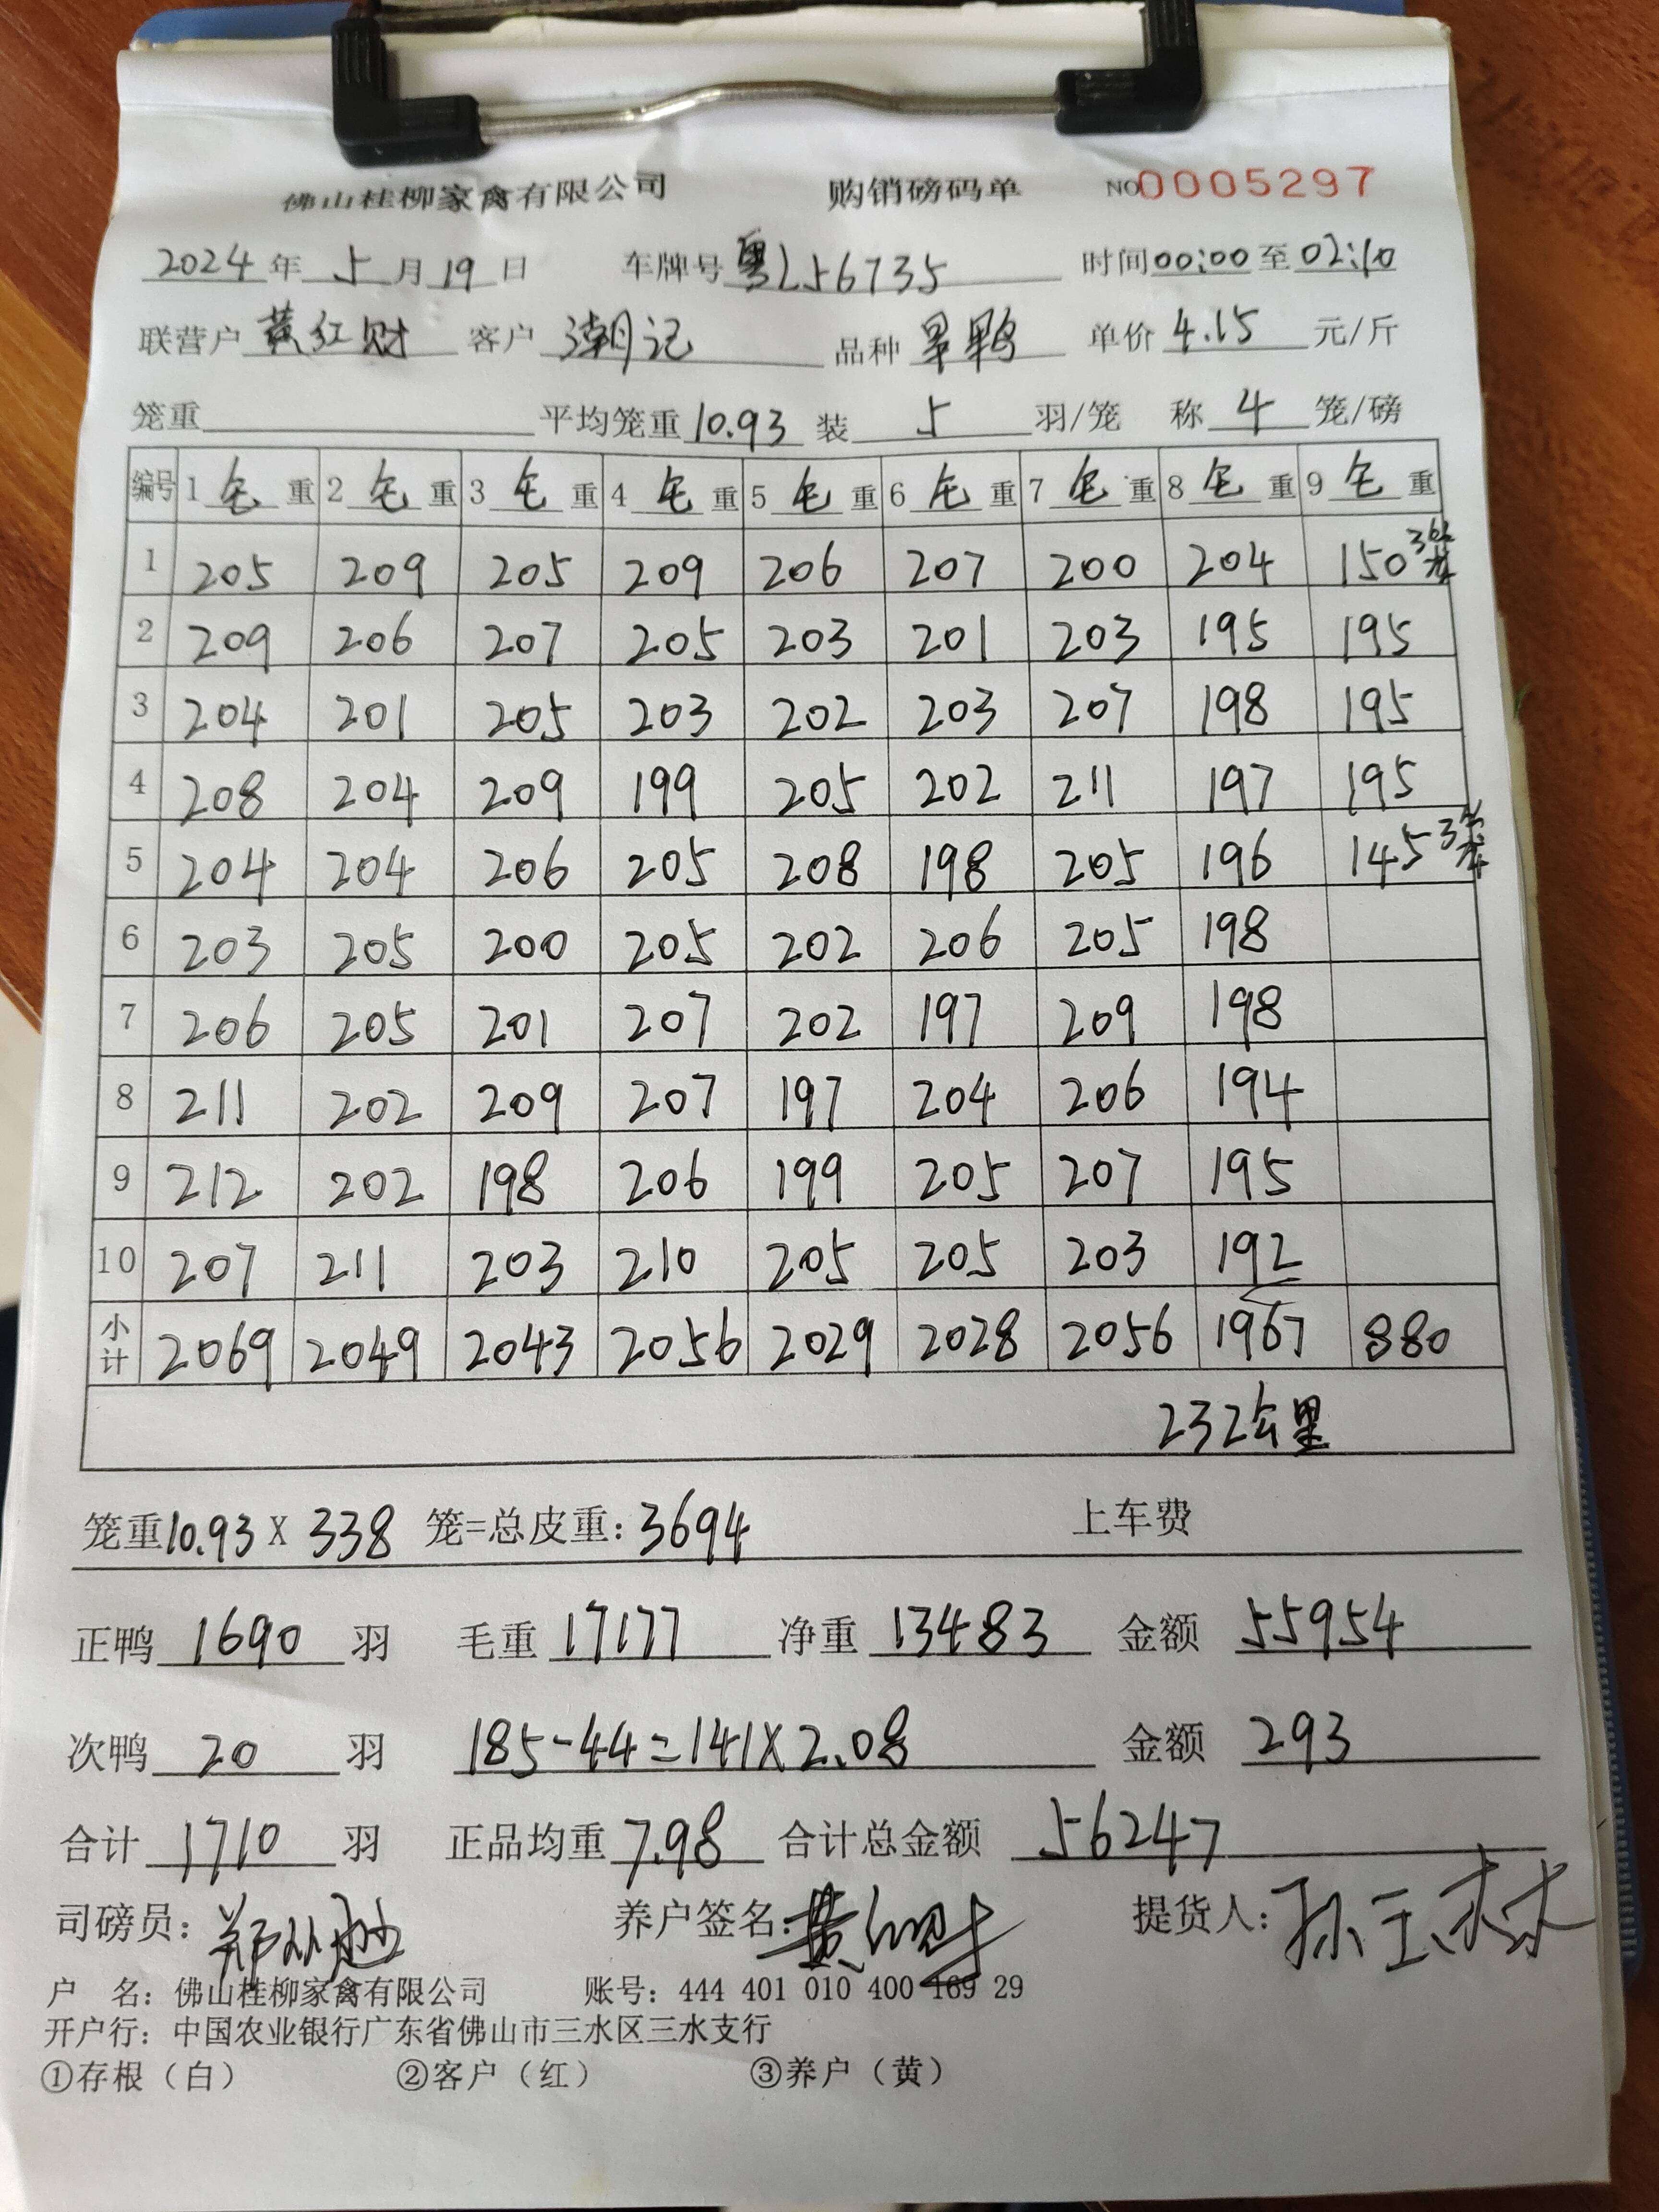 佛山桂柳家禽有限公司 购销磅码单 NO0005297
2024年5月19日 车牌号粤L56735 时间00:00至02:10
联营户黄红财 客户潮记 品种旱鸭 单价4.15元/斤
笼重 平均笼重10.93装5羽/笼 称4笼/磅
编号 1毛重 2毛重 3毛重 4毛重 5毛重 6毛重 7毛重 8毛重 9毛重
1 205 209 205 209 206 207 200 204 150 3笼
2 209 206 207 205 203 201 203 195 195
3 204 201 205 203 202 203 207 198 195
4 208 204 209 199 205 202 211 197 195
5 204 204 206 205 208 198 205 196 145 3笼
6 203 205 200 205 202 206 205 198
7 206 205 201 207 202 197 209 198
8 211 202 209 207 197 204 206 194
9 212 202 198 206 199 205 207 195
10 207 211 203 210 205 205 203 192
小计 2069 2049 2043 2056 2029 2028 2056 1967 880
232公里
笼重10.93X338笼=总皮重:3694 上车费
正鸭1690羽 毛重17177 净重13483 金额55954
次鸭20羽 185-44=141X2.08 金额293
合计1710羽 正品均重7.98 合计总金额56247
司磅员: 养户签名:黄红财 提货人:孙玉林
户 名:佛山桂柳家禽有限公司 账号:444 401 010 400 169 29
开户行:中国农业银行广东省佛山市三水区三水支行
①存根(白) ②客户(红) ③养户(黄)